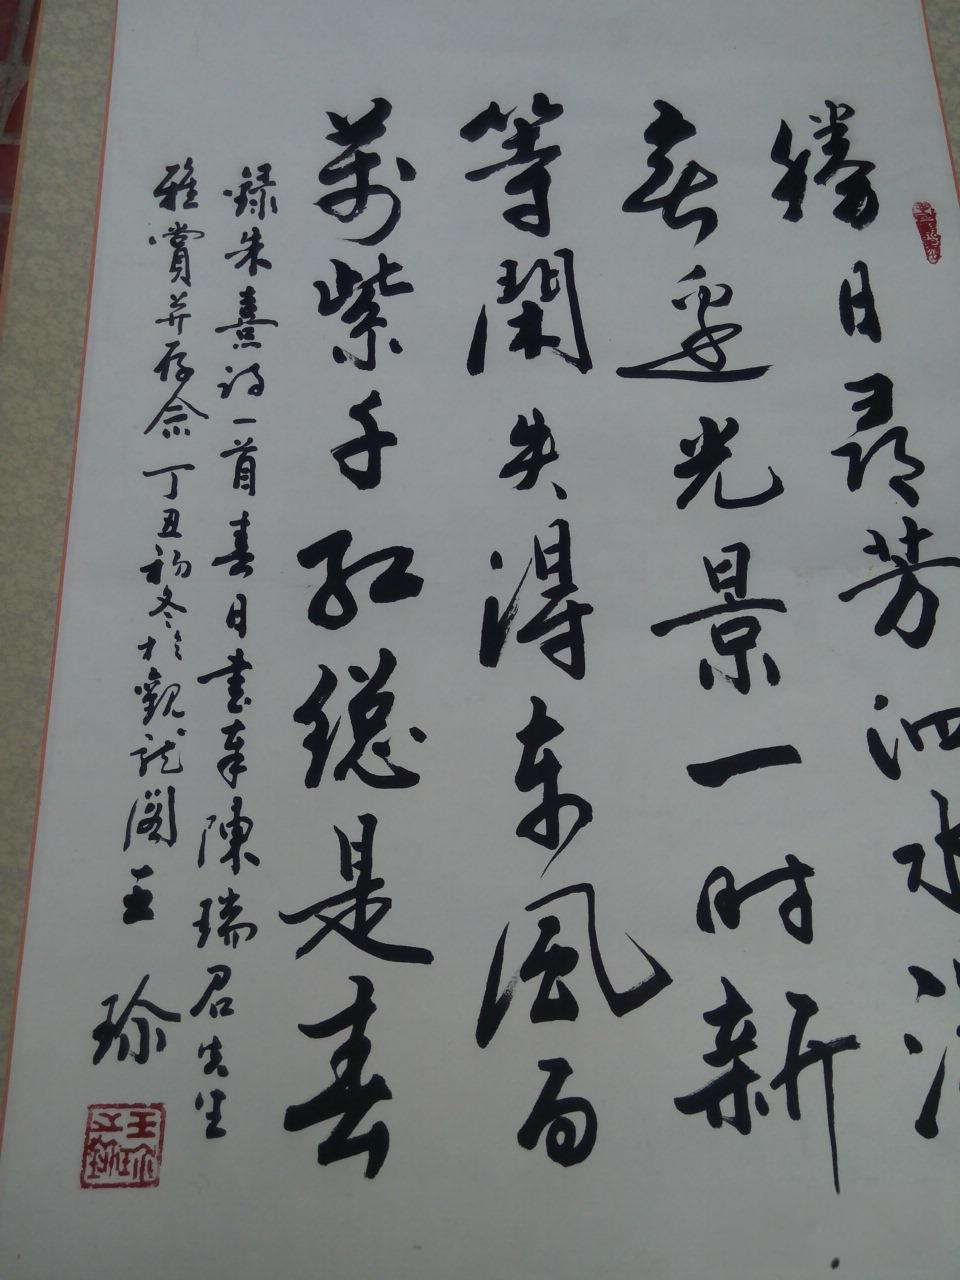 勝日尋芳泗水濱
無邊光景一時新
等閑失得東風面
萬紫千紅總是春
錄朱熹詩一首春日書奉陳瑞君先生
雅賞并存念丁丑初冬於觀龍閣王珍